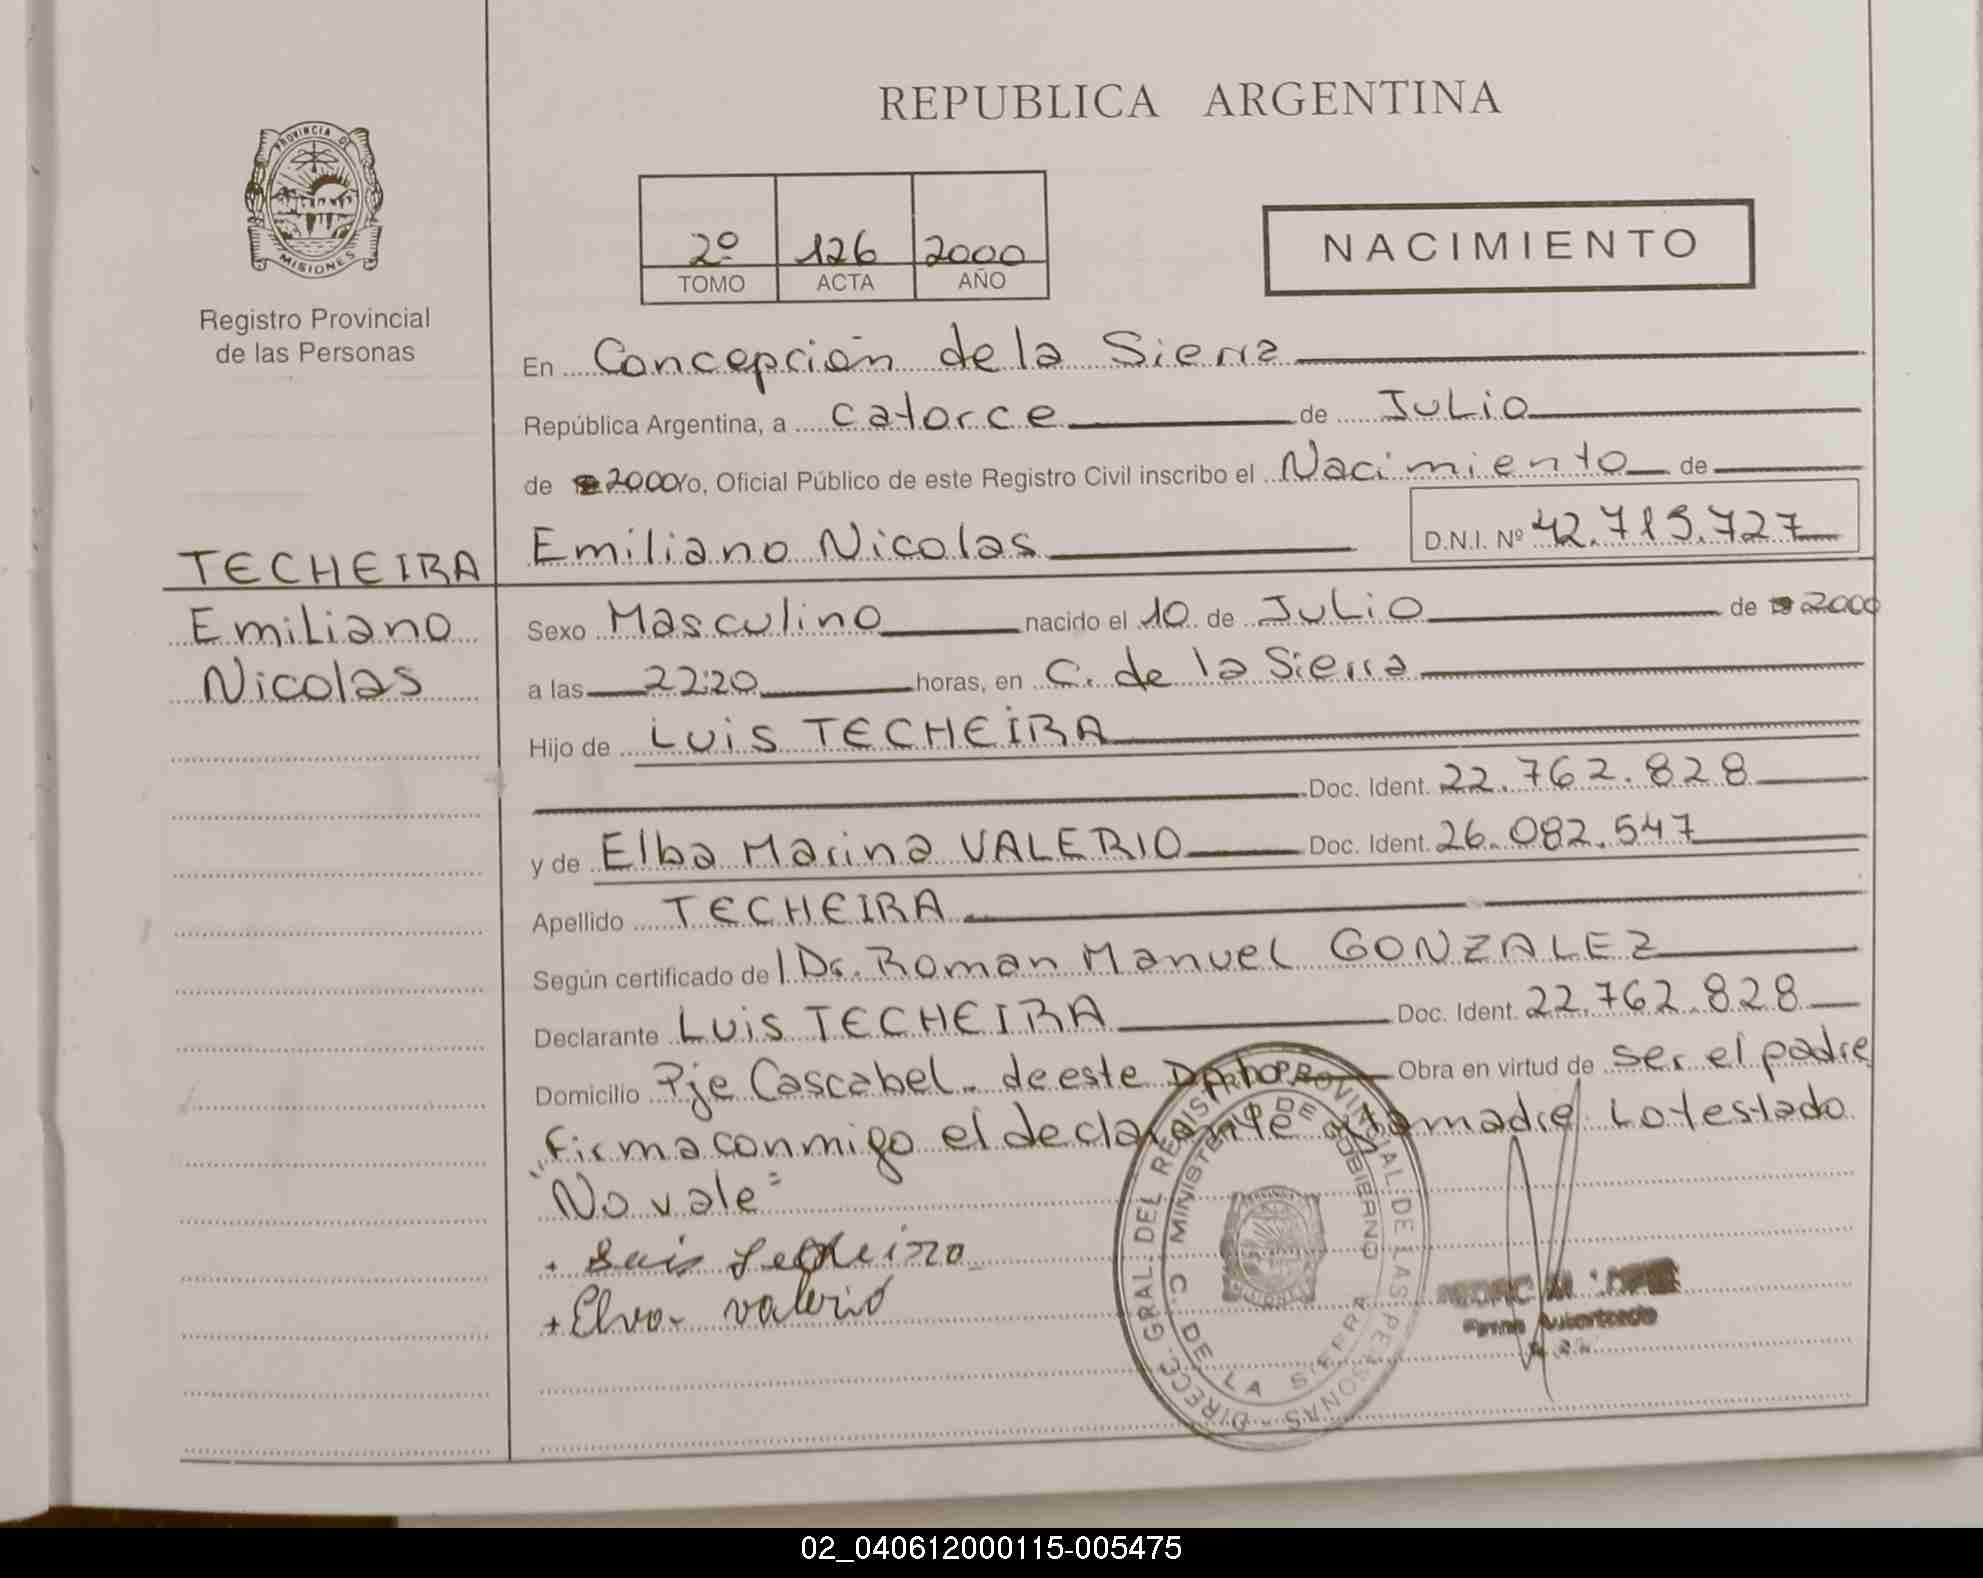 REPUBLICA ARGENTINA
PROVINCIA DE
MISIONES
Registro Provincial
de las Personas
2º 126 2000
TOMO ACTA AÑO
NACIMIENTO
En Concepción de la Sierra
República Argentina, a catorce de Julio
de 2000 Yo, Oficial Público de este Registro Civil inscribo el Nacimiento de
Emiliano Nicolas D.N.I. Nº 42.715.727
TECHEIRA
Emiliano
Nicolas
Sexo Masculino nacido el 10 de Julio de 2000
a las 22:20 horas, en C. de la Sierra
Hijo de Luis TECHEIRA
Doc. Ident. 22.762.828
y de Elba Marina VALERIO Doc. Ident. 26.082.547
Apellido TECHEIRA
Según certificado de Dr. Roman Manuel GONZALEZ
Declarante Luis TECHEIRA Doc. Ident. 22.762.828
Domicilio Pje Cascabel. de este Dpto Obra en virtud de ser el padre
firma conmigo el declarante y la madre Lo testado
"No vale"
+ Luis Techeira
+ Elva valerio
DIRECC. GRAL. DEL REGISTRO PROVINCIAL DE LAS PERSONAS
MINISTERIO DE GOBIERNO
C. DE LA SIERRA
Firma Autorizada
02_040612000115-005475